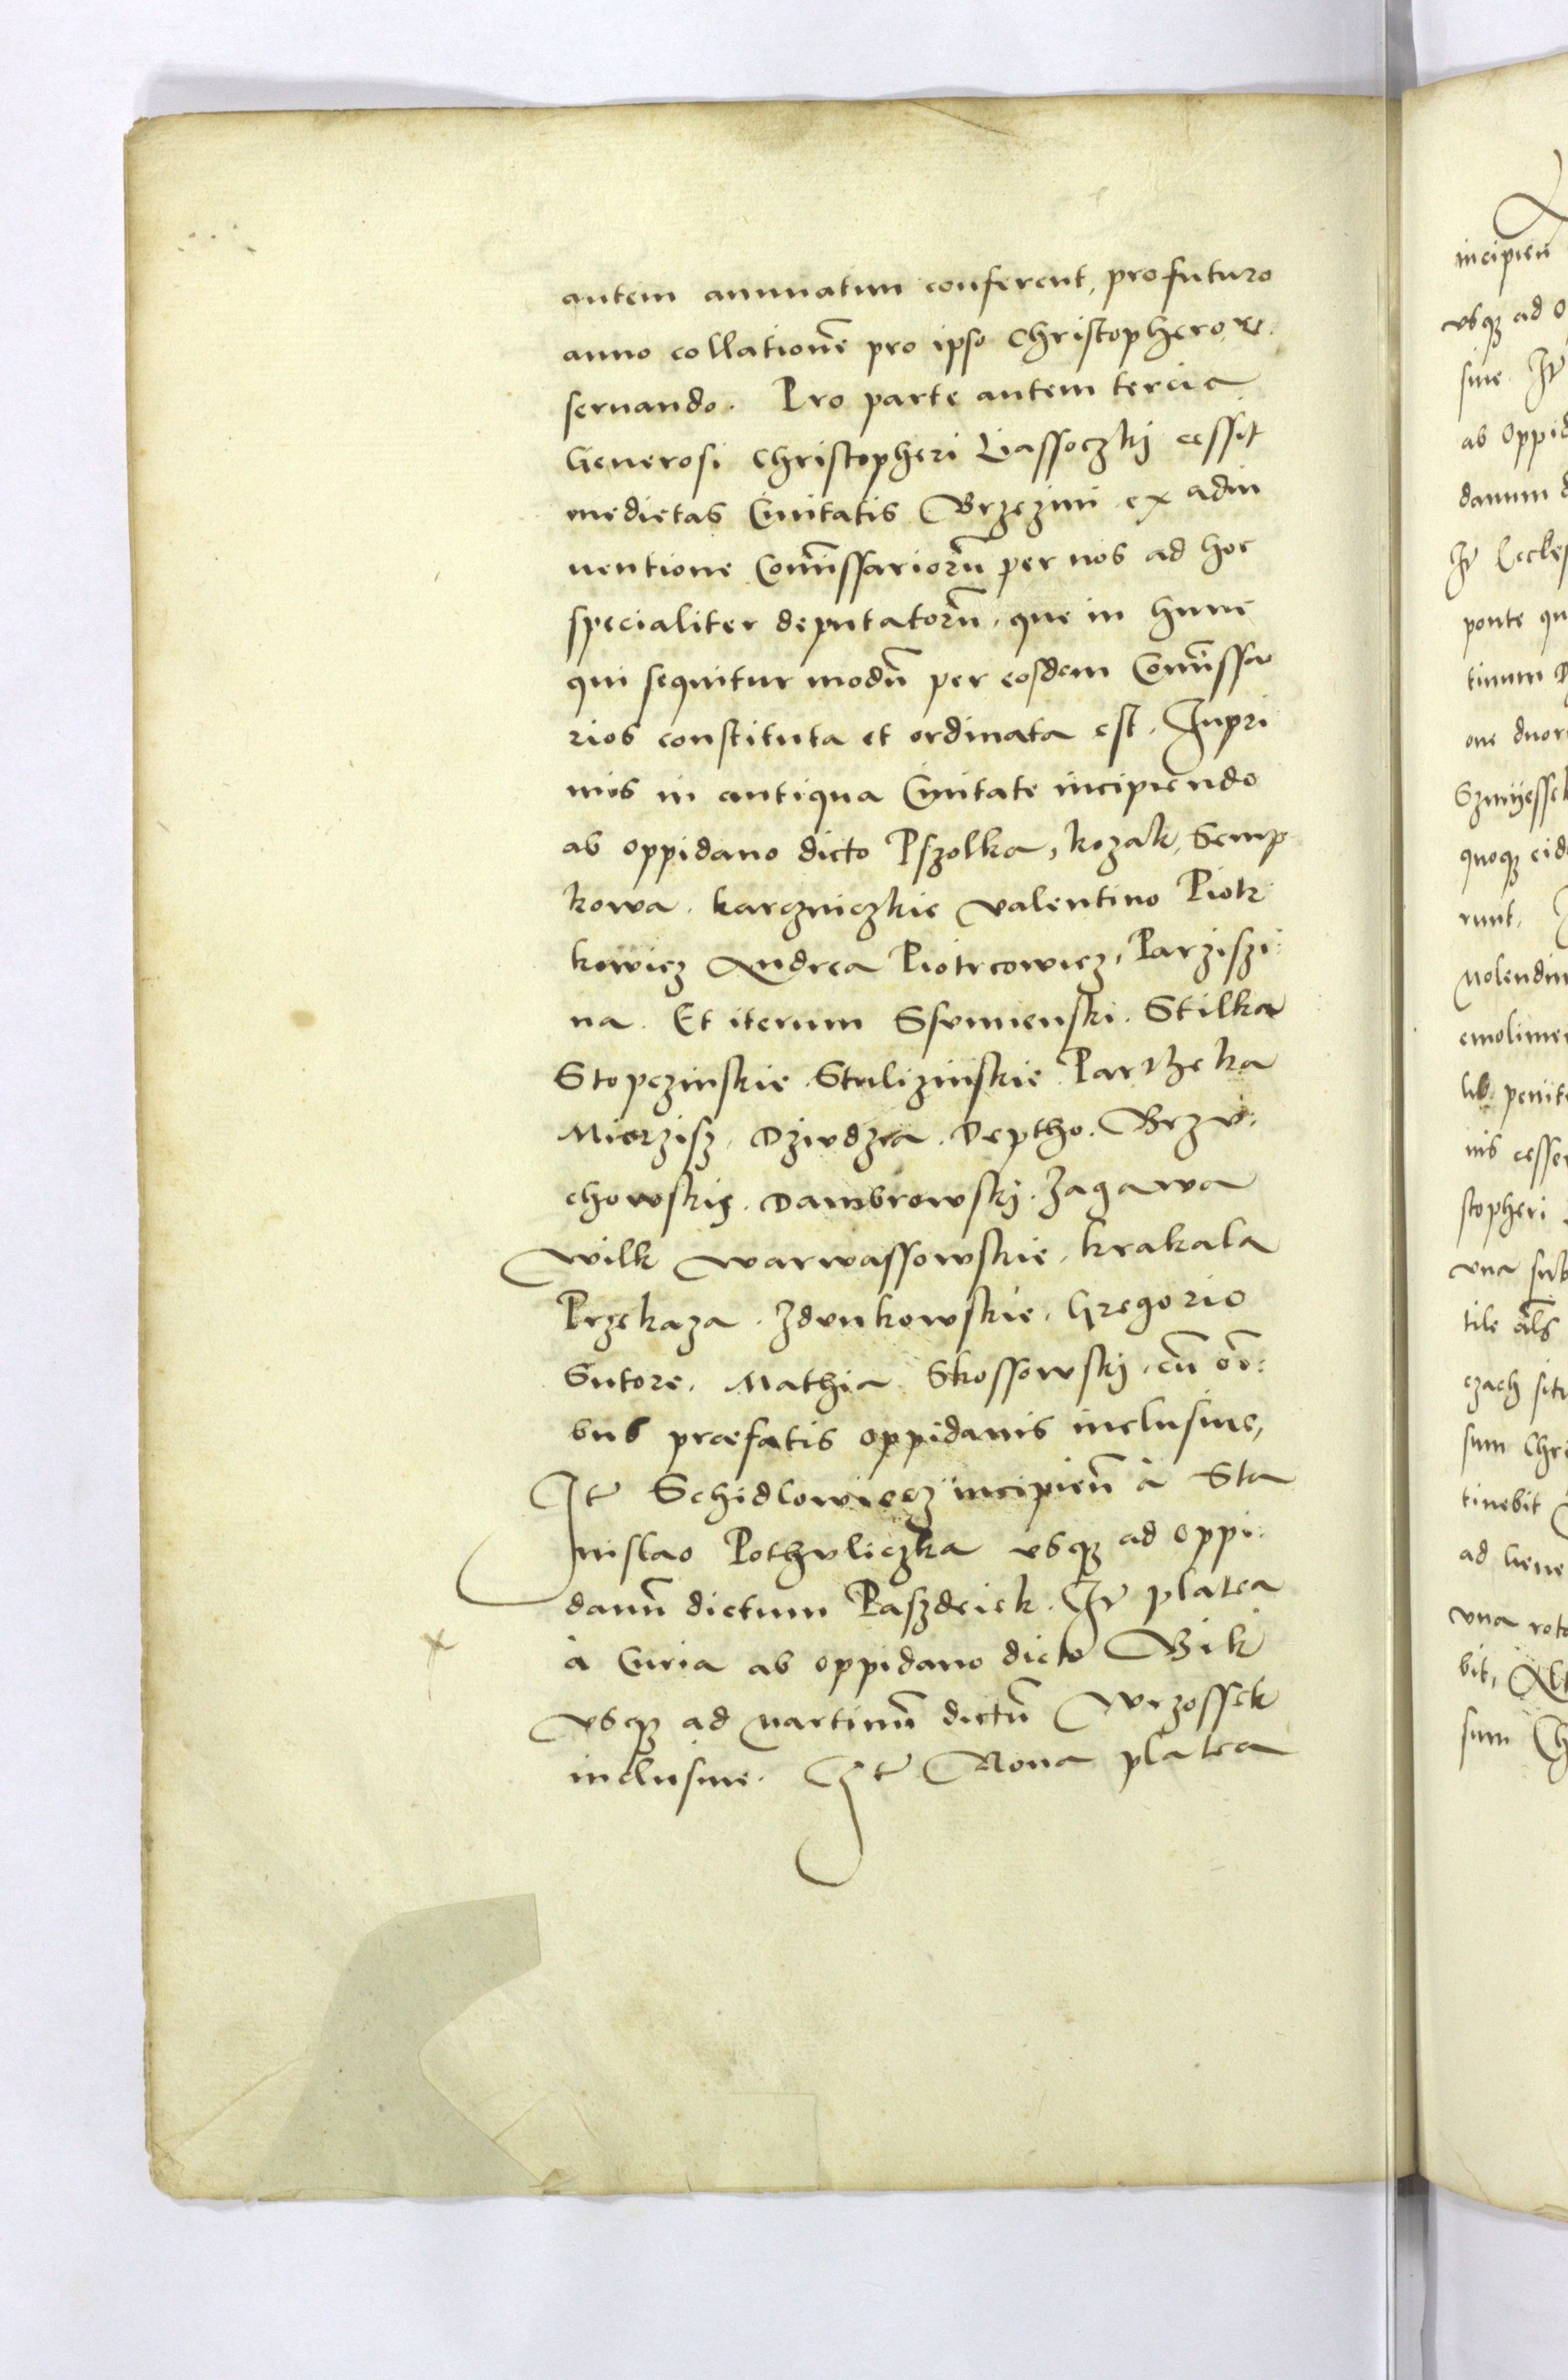 autem annuatim conferent, pro futuro
anno collationē pro ipso Christophero, re
seruando. Pro parte autem tercia
Generosi Christopheri Liassoczkj cessit
medietas Ciuitatis Brzezini ex adin
uentione Com̄issariorū per nos ad hoc
specialiter deputatorū, que in hunc
qui sequitur modū per eosdem Com̄issa
rios constituta et ordinata est. Inpri
mis in antiqua Ciuitate incipiendo
ab oppidano dicto Pszolka, kozak, Semp
kowa, karczniczkie valentino Piotr
kowicz Andrea Piotrcowicz, Parziszi:
na. Et iterum Ssvmienski. Stilka
Stopczinskie. Stulizinskie. Partheka
Mierzisz, Dzivdzia. Deptho. Brzv:
chowskie. Dambrowskj. Zagawa
Wilk warwassowskie, krakala
Przekaza. Zdvnkowskie, Gregorio
Sutore, Mathia Skossowskj, cū oī:
bus præfatis oppidanis inclusiue,
It̄ Schidlowiecz incipien̄ à Sta
nislao Pothvliczka vsqꝫ ad oppi:
danū dictum Paszdeiek. It̄ platea
à Curia ab oppidano dicto Bik
vsqꝫ ad Martinū dictū Wrzossek
inclusiue. It̄ Noua platea
incipien̄
vsqꝫ ad
siue It̄
ab Oppid
danum
It̄ Eccles
ponte qu
tinum
one duor
Szmijessek
quoqꝫ eid
runt,
Molendin
emolimen
nis cesser
stopheri
vna sub
tile
czach situ
sum Chr
tinebit
ad Gene
vna rota
bit,
sum Ch